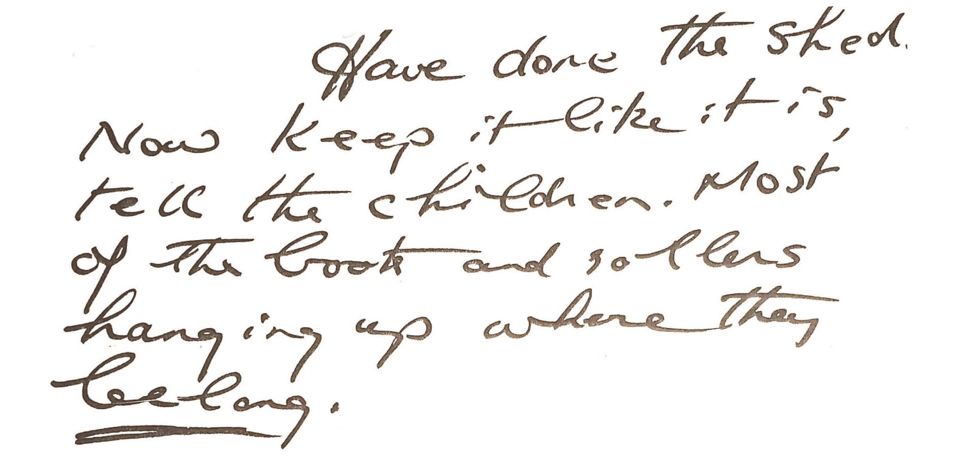 Have done the shed.
Now keep it like it is,
tell the children. Most
of the boots and rollers
hanging up where they
belong.